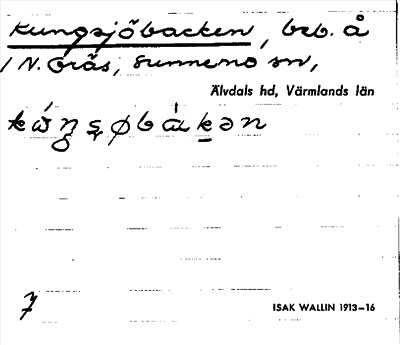 Kungsjöbacken, beb. å
1 N. Gräs, Sunnemo sn,
Älvdals hd, Värmlands län
7
ISAK WALLIN 1913–16